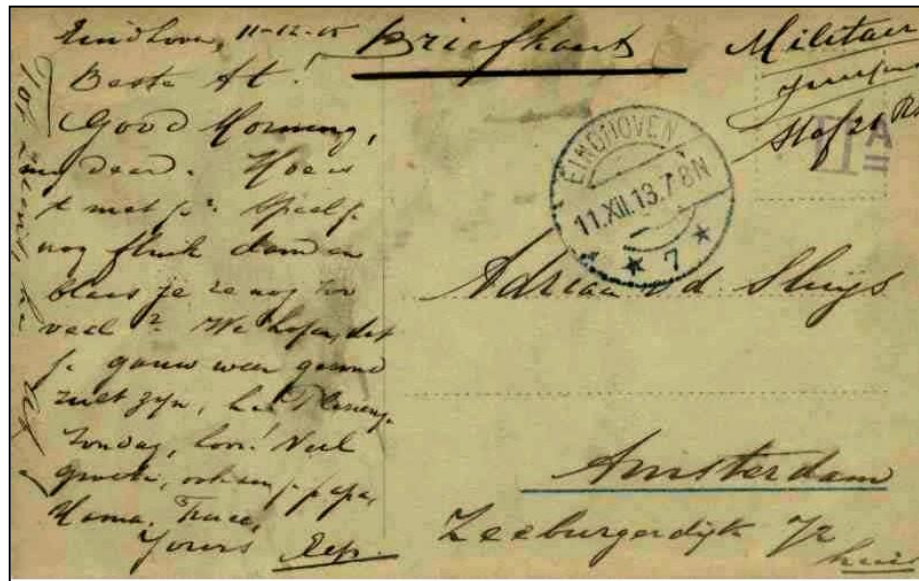 Eindhoven, 11-12-15
Beste At!
Good Morning,
my dear. Hoe is
't met je? Speel je
nog flink dammen
blaas je ze nog too
veel? We hopen, dat
je gauw weer gezond
zult zijn, hoor!
Zondag, hoor! Veel
groeten, ook aan je papa,
Mama. Truce,
Yours Rep.
Briefkaart
Militair
Staf 21 R.
EINDHOVEN
11.XII.13.7 8N
* 7 *
A
Adriaan v.d. Sluijs
Amsterdam
Zeeburgerdijk 72
huis